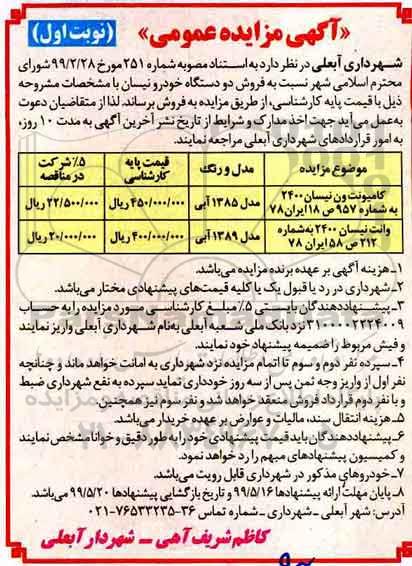 «آگهی مزایده عمومی»
(نوبت اول)
شهرداری آبعلی در نظر دارد به استناد مصوبه شماره ۲۵۱ مورخ ۹۹/۲/۲۸ شورای
محترم اسلامی شهر نسبت به فروش دو دستگاه خودرو نیسان با مشخصات مشروحه
ذیل با قیمت پایه کارشناسی، از طریق مزایده به فروش برساند. لذا از متقاضیان دعوت
به‌عمل می‌آید جهت اخذ مدارک و شرایط از تاریخ نشر آخرین آگهی به مدت ۱۰ روز،
به امور قراردادهای شهرداری آبعلی مراجعه نمایند.
موضوع مزایده | مدل و رنگ | قیمت پایه کارشناسی | ۵٪ شرکت در مناقصه
کامیونت ون نیسان ۲۴۰۰ به شماره ۹۵۷ ص ۱۸ ایران ۷۸ | مدل ۱۳۸۵ آبی | ۴۵۰/۰۰۰/۰۰۰ ریال | ۲۲/۵۰۰/۰۰۰ ریال
وانت نیسان ۲۴۰۰ به‌شماره ۲۱۲ ص ۵۸ ایران ۷۸ | مدل ۱۳۸۹ آبی | ۴۰۰/۰۰۰/۰۰۰ ریال | ۲۰/۰۰۰/۰۰۰ ریال
۱ـ هزینه آگهی بر عهده برنده مزایده می‌باشد.
۲ـ شهرداری در رد یا قبول یک یا کلیه قیمت‌های پیشنهادی مختار می‌باشد.
۳ـ پیشنهاددهندگان بایستی ۵٪ مبلغ کارشناسی مورد مزایده را به حساب
۳۱۰۰۰۰۲۲۲۴۰۰۹ نزد بانک ملی شعبه آبعلی به‌نام شهرداری آبعلی واریز نمایند
و فیش مربوط را ضمیمه پیشنهاد خود نمایند.
۴ـ سپرده نفر دوم و سوم تا اتمام مزایده نزد شهرداری به امانت خواهد ماند و چنانچه
نفر اول از واریز وجه ثمن پس از سه روز خودداری نماید سپرده به نفع شهرداری ضبط
و با نفر دوم قرارداد فروش منعقد خواهد شد و نفر سوم نیز همچنین.
۵ـ هزینه انتقال سند، مالیات و عوارض بر عهده خریدار می‌باشد.
۶ـ پیشنهاددهندگان باید قیمت پیشنهادی خود را به طور دقیق و خوانا مشخص نمایند
و کمیسیون پیشنهادهای مبهم را رد خواهد نمود.
۷ـ خودروهای مذکور در شهرداری قابل رویت می‌باشد.
۸ـ پایان مهلت ارائه پیشنهادها ۹۹/۵/۱۶ و تاریخ بازگشایی پیشنهادها ۹۹/۵/۲۰ می‌باشد.
آدرس: شهر آبعلی ـ شهرداری ـ شماره تماس ۳۶-۷۶۵۳۳۲۳۵-۰۲۱
کاظم شریف آهی ـ شهردار آبعلی